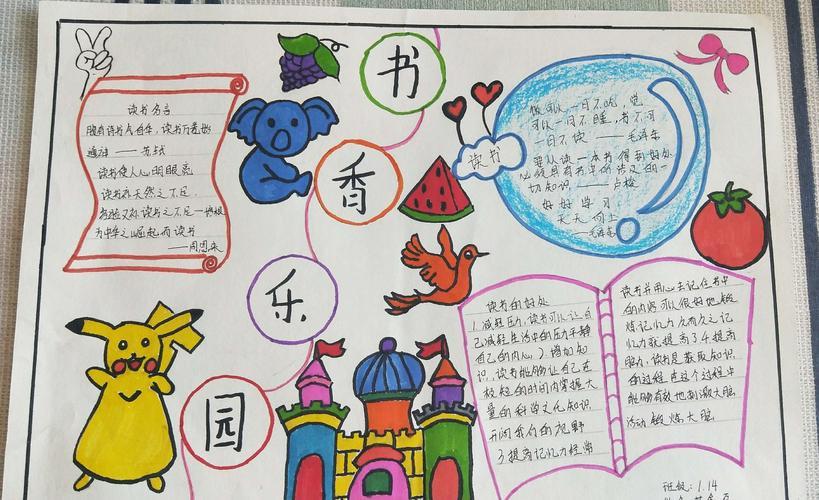 书
香
乐
园
读书名言
腹有诗书气自华，读书万卷始
通神——苏轼
读书使人心明眼亮
读书补天然之不足，
经验又补读书之不足—培根
为中华之崛起而读书
——周恩来
读书
饭可以一日不吃，觉
可以一日不睡，书不可
一日不读——毛泽东
要从读一本书得到好处
一切知识——卢梭
好好学习
天天向上
——毛泽东
读书的好处
1.减轻压力，读书可以让自
己减轻生活中的压力平静
自己的内心2增加知
识，读书能够让自己在
极短的时间内掌握大
量的科学文化知识，
开阔我们的视野
3提高记忆力经常
读书并用心去记住书中
的内容可以很好地锻
炼记忆力久而久之记
忆力就提高了4提高
脑力，读书是获取知识
的过程在这个过程中
能够有效地刺激大脑
活动锻炼大脑。
班级：1.14